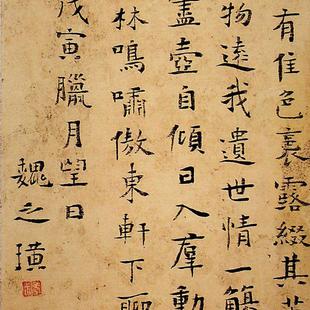 有佳色裛露綴其
物遠我遺世情一觴
盡壺自傾日入羣動
林鳴嘯傲東軒下聊
戊寅臘月望日
魏之璜